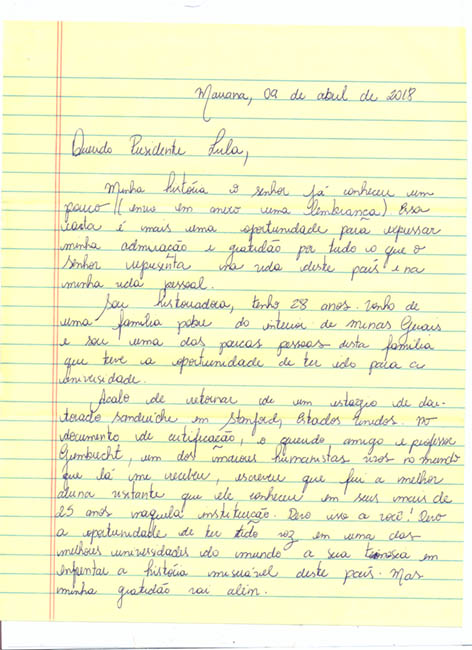 Mariana, 09 de abril de 2018
Querido Presidente Lula,
Minha história o senhor já conheceu um
pouco (envio em anexo uma lembrança) Essa
carta é mais uma oportunidade para expressar
minha admiração e gratidão por tudo o que o
senhor representa na vida deste país e na
minha vida pessoal.
Sou historiadora, tenho 28 anos. Venho de
uma família pobre do interior de Minas Gerais
e sou uma das poucas pessoas desta família
que teve a oportunidade de ter ido para a
universidade.
Acabo de retornar de um estágio de dou-
torado sanduíche em Stanford, Estados Unidos. No
documento de certificação, o querido amigo e professor
Gumbrecht, um dos maiores humanistas vivos no mundo
que lá me recebeu, escreveu que fui a melhor
aluna visitante que ele conheceu em seus mais de
25 anos naquela instituição. Devo isso a você! Devo
a oportunidade de ter tido voz em uma das
melhores universidades do mundo a sua teimosia em
enfrentar a história miserável deste país. Mas
minha gratidão vai além.